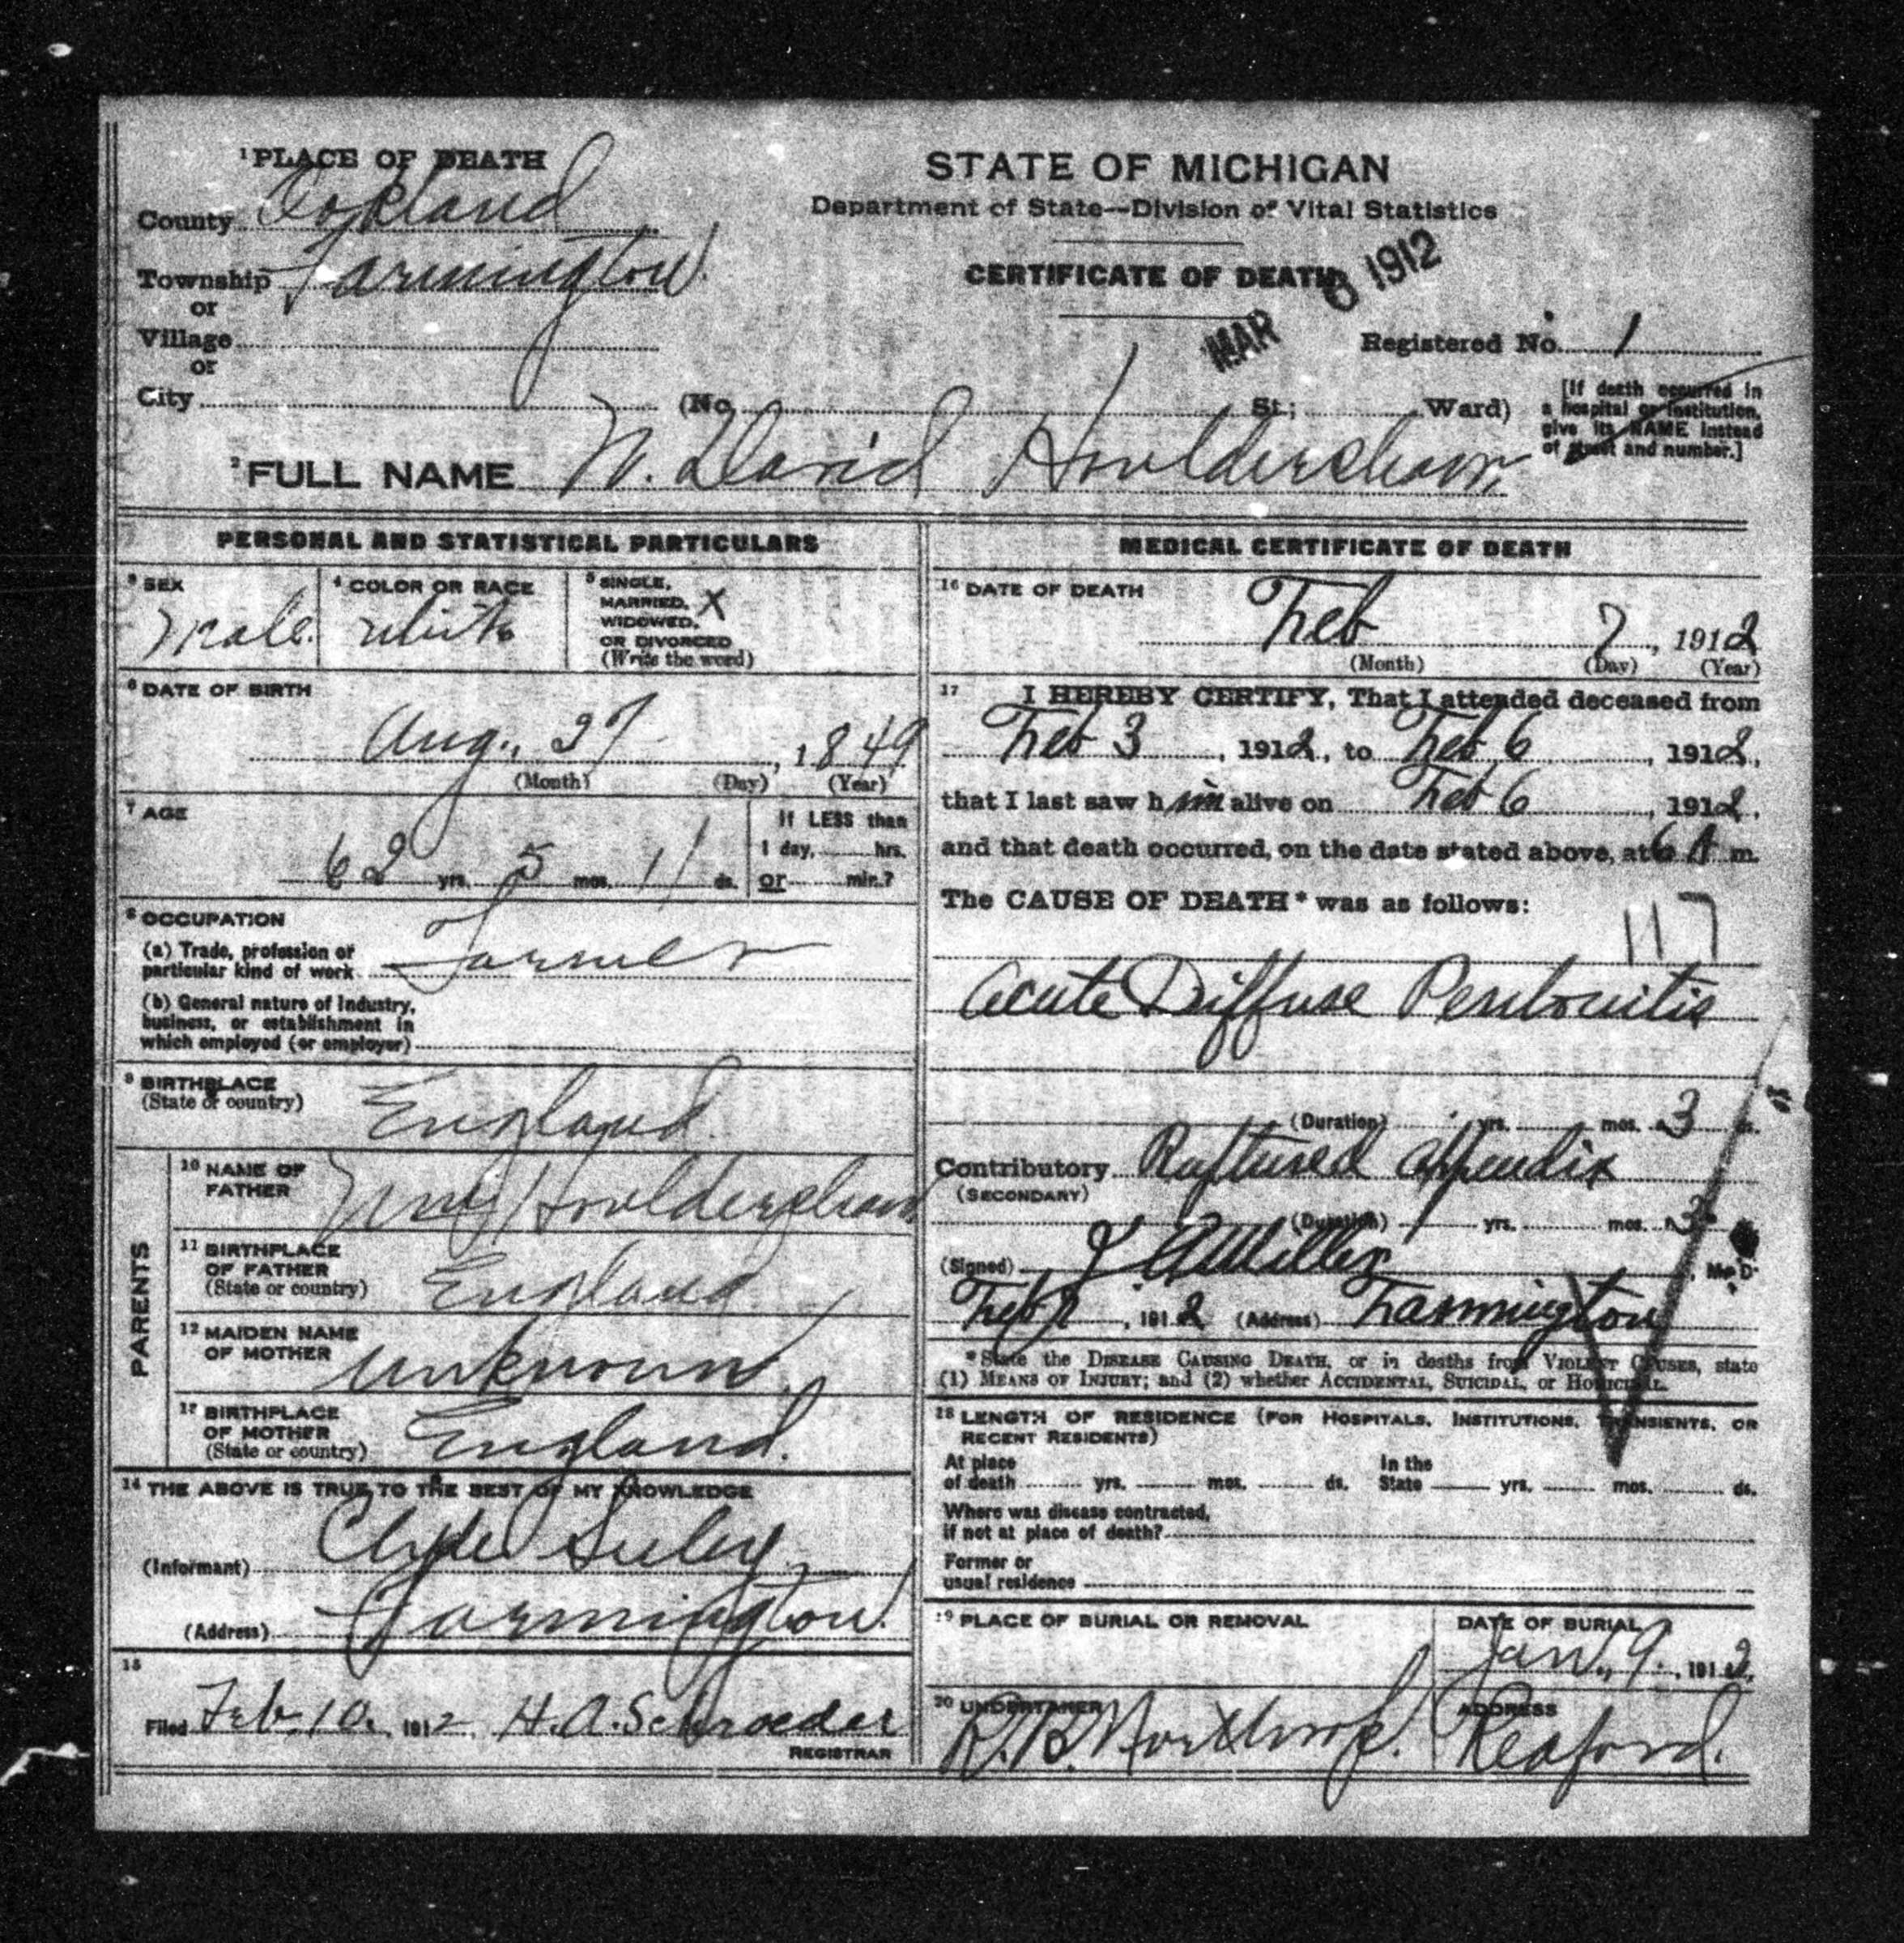 ¹PLACE OF DEATH
County Oakland
Township Farmington
or
Village
or
City (No. St.; Ward)
STATE OF MICHIGAN
Department of State—Division of Vital Statistics
CERTIFICATE OF DEATH
MAR 6 1912
Registered No. 1
[If death occurred in
a hospital or institution,
give its NAME instead
of street and number.]
²FULL NAME W. David Houldersham
PERSONAL AND STATISTICAL PARTICULARS
³ SEX
Male.
⁴ COLOR OR RACE
White
⁵ SINGLE,
MARRIED, X
WIDOWED,
OR DIVORCED
(Write the word)
⁶ DATE OF BIRTH
Aug., 27, 1849
(Month) (Day) (Year)
⁷ AGE
62 yrs. 5 mos. 11 ds.
If LESS than
1 day, hrs.
or min.?
⁸ OCCUPATION
(a) Trade, profession or
particular kind of work Farmer
(b) General nature of Industry,
business, or establishment in
which employed (or employer)
⁹ BIRTHPLACE
(State or country) England.
PARENTS
¹⁰ NAME OF
FATHER Wm Houldersham
¹¹ BIRTHPLACE
OF FATHER
(State or country) England
¹² MAIDEN NAME
OF MOTHER Unknown
¹³ BIRTHPLACE
OF MOTHER
(State or country) England.
¹⁴ THE ABOVE IS TRUE TO THE BEST OF MY KNOWLEDGE
(Informant) Clyde Seeley
(Address) Farmington.
¹⁵
Filed Feb. 10, 1912, H.A. Schroeder
REGISTRAR
MEDICAL CERTIFICATE OF DEATH
¹⁶ DATE OF DEATH
Feb 7, 1912
(Month) (Day) (Year)
¹⁷ I HEREBY CERTIFY, That I attended deceased from
Feb 3, 1912, to Feb 6, 1912,
that I last saw him alive on Feb 6, 1912,
and that death occurred, on the date stated above, at 6 A m.
The CAUSE OF DEATH* was as follows:
117
Acute Diffuse Peritonitis
(Duration) yrs. mos. 3 ds.
Contributory Ruptured Appendix
(SECONDARY)
(Duration) yrs. mos. 3 ds.
(Signed) J A Miller, M. D.
Feb 7, 1912 (Address) Farmington
*State the DISEASE CAUSING DEATH, or in deaths from VIOLENT CAUSES, state
(1) MEANS OF INJURY; and (2) whether ACCIDENTAL, SUICIDAL, or HOMICIDAL.
¹⁸ LENGTH OF RESIDENCE (FOR HOSPITALS, INSTITUTIONS, TRANSIENTS, OR
RECENT RESIDENTS)
At place
of death yrs. mos. ds.
In the
State yrs. mos. ds.
Where was disease contracted,
if not at place of death?
Former or
usual residence
¹⁹ PLACE OF BURIAL OR REMOVAL
DATE OF BURIAL
Jan. 9, 1912
²⁰ UNDERTAKER
R.B. Northrop.
ADDRESS
Redford.